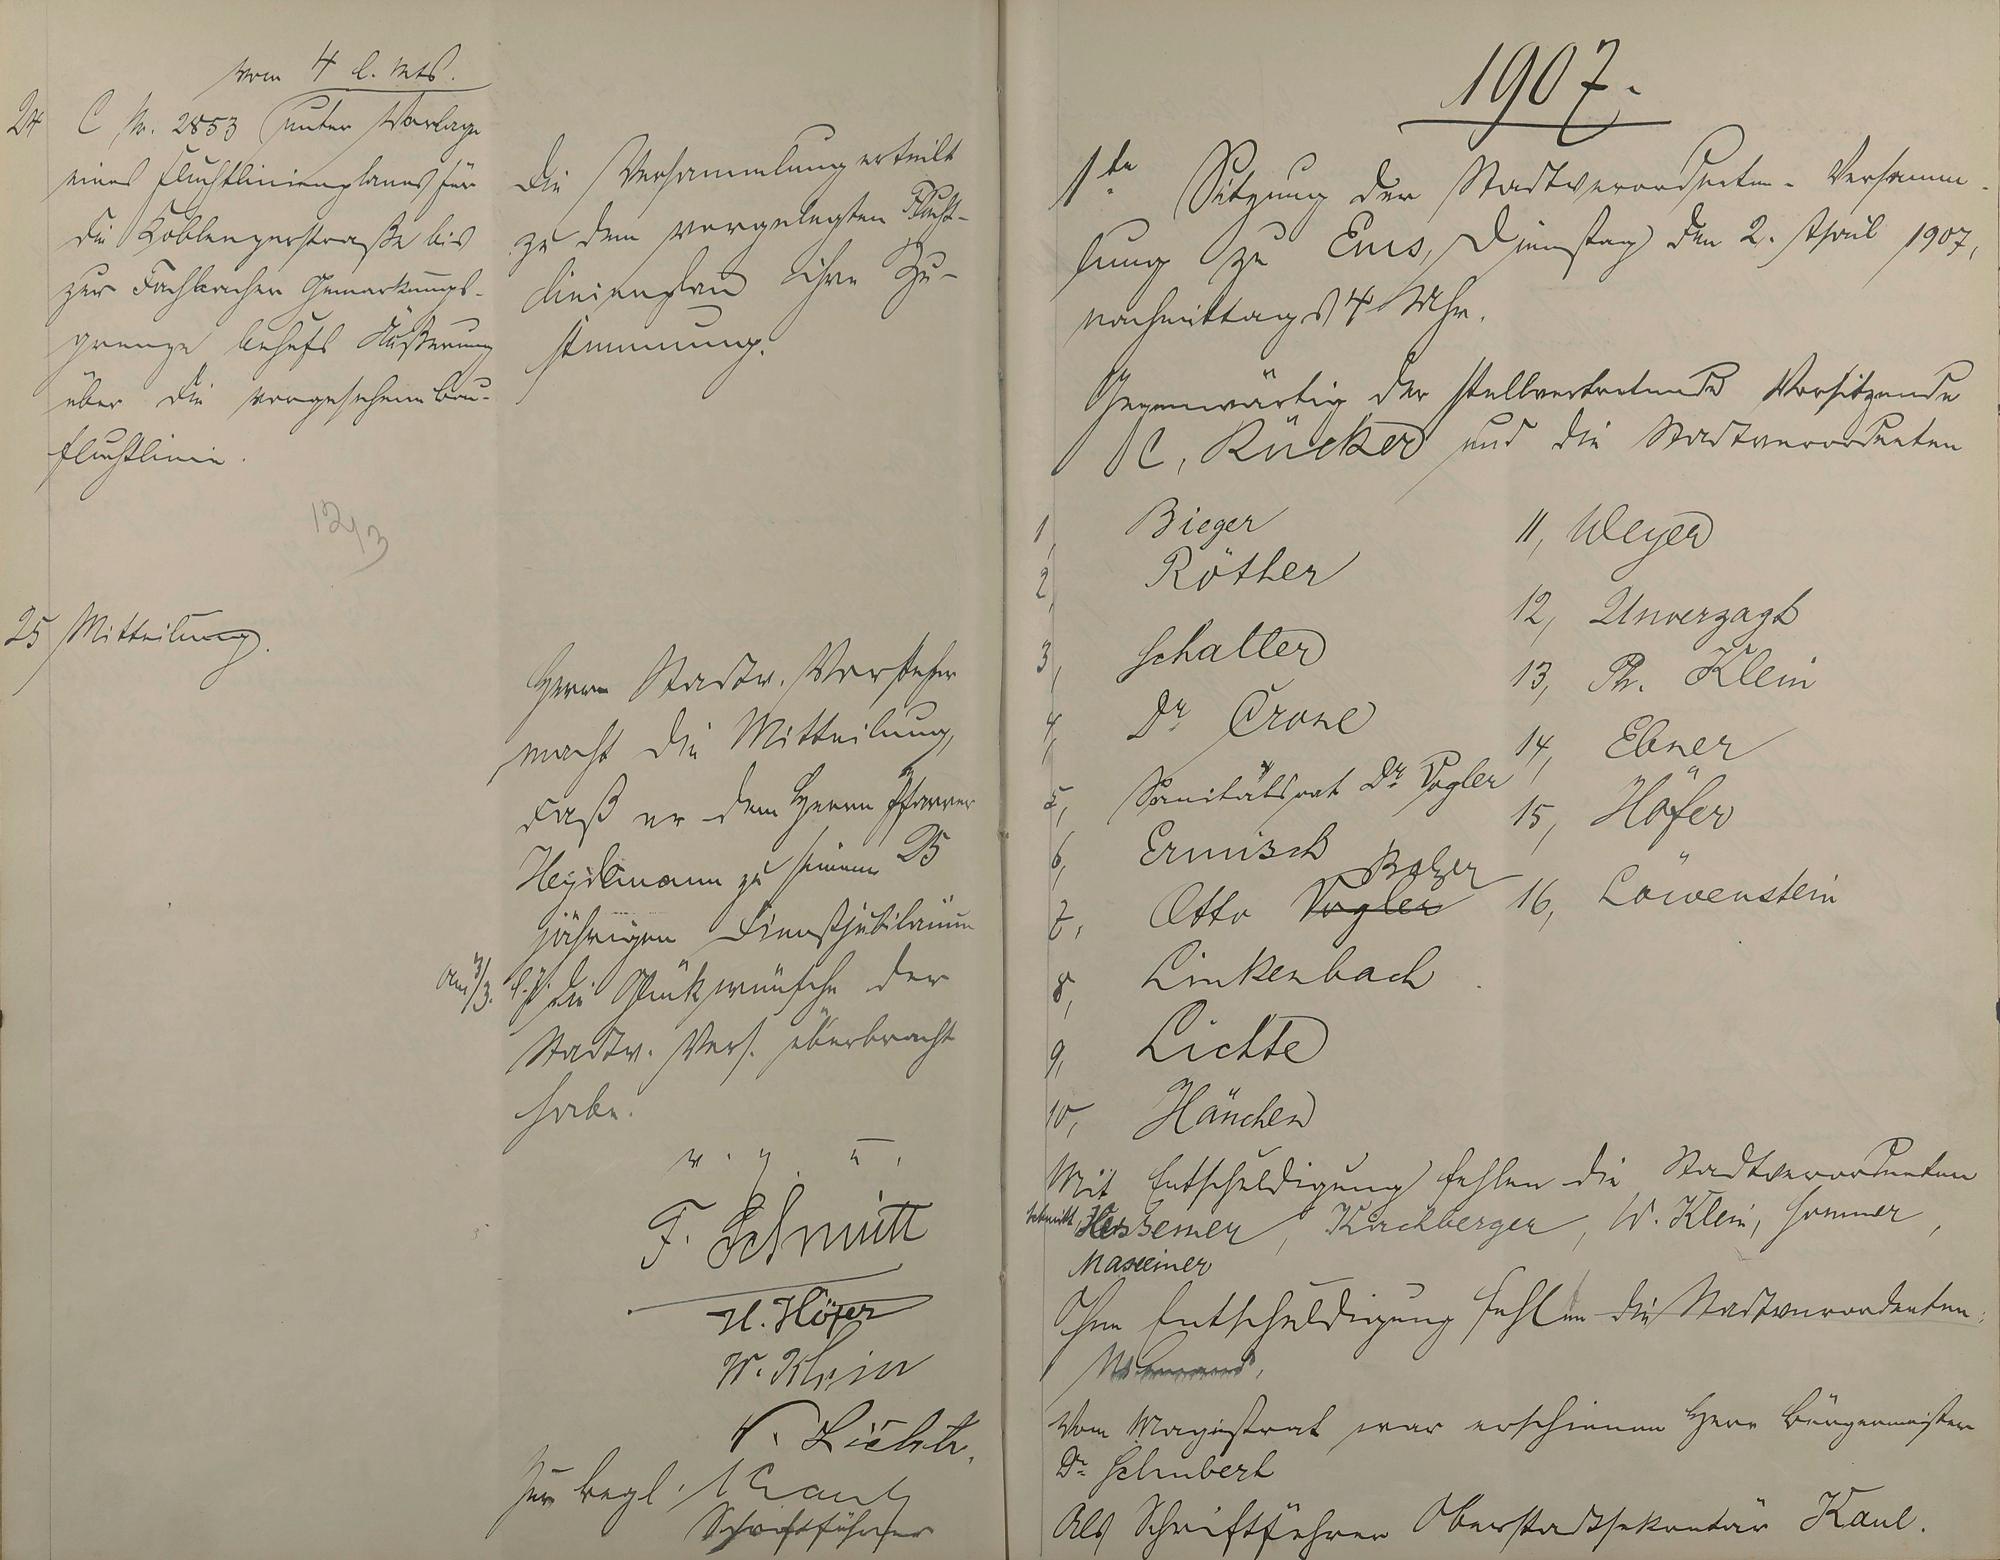 vom 4 l. Mts.
24 C Nr. 2853 unter Vorlage
eines Fluchtlinienplanes für
die Koblenzerstraße bis
zur Fachbacher Gemarkungs-
grenze behufs Äußerung
über die vorgesehene Bau-
fluchtlinie.
Die Versammlung erteilt
zu dem vorgelegten Flucht-
linienplan ihre Zu-
stimmung.
12/3
25 Mitteilung.
Herr Stadtv. Vorsteher
macht die Mitteilung,
daß er dem Herrn Pfarrer
Heydemann zu seinem 25
jährigen Dienstjubiläum
am 3/3. l. J. die Glückwünsche der
Stadtv. Vers. überbracht
habe.
v. g. u.
F. Schmitt
H. Höfer
W. Klein
Lichte.
Zur Begl. Kaul
Schriftführer
1907.
1te Sitzung der Stadtverordneten-Versamm-
lung zu Ems, Dienstag den 2. April 1907,
nachmittags 4 Uhr.
Gegenwärtig der stellvertretende Vorsitzende
C. Rücker und die Stadtverordneten
1, Bieger
2, Röther
3, Schaller
4, Dr Crone
5, Sanitätsrat Dr Vogler
6, Ermisch
7, Otto Vogler Balzer
8, Linkenbach
9, Lichte
10, Hänchen
11, Weyer
12, Unverzagt
13, Ph. Klein
14, Ebner
15, Höfer
16, Löwenstein
Mit Entschuldigung fehlen die Stadtverordneten
Schmitt, Hessemer, Kirchberger, W. Klein, Sommer,
Maxeiner
Ohne Entschuldigung fehlen die Stadtverordneten:
Niemand,
Vom Magistrat war erschienen Herr Bürgermeister
Dr Schubert
Als Schriftführer Oberstadtsekretär Kaul.